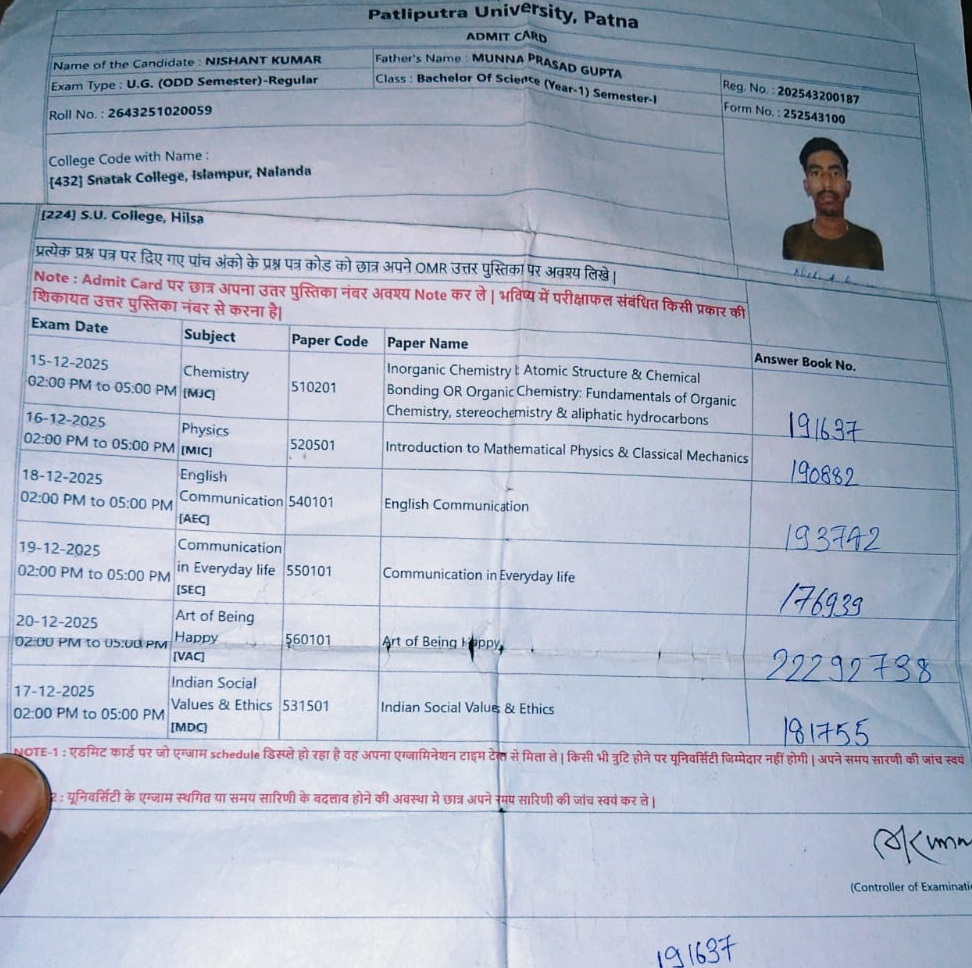 Patliputra University, Patna
ADMIT CARD
Name of the Candidate : NISHANT KUMAR
Father's Name : MUNNA PRASAD GUPTA
Exam Type : U.G. (ODD Semester)-Regular
Class : Bachelor Of Science (Year-1) Semester-I
Reg. No. : 202543200187
Roll No. : 2643251020059
Form No. : 252543100
College Code with Name :
[432] Snatak College, Islampur, Nalanda
[224] S.U. College, Hilsa
प्रत्येक प्रश्न पत्र पर दिए गए पांच अंको के प्रश्न पत्र कोड को छात्र अपने OMR उत्तर पुस्तिका पर अवश्य लिखे |
Note : Admit Card पर छात्र अपना उतर पुस्तिका नंबर अवश्य Note कर ले | भविष्य में परीक्षाफल संबंधित किसी प्रकार की
शिकायत उत्तर पुस्तिका नंबर से करना है|
Exam Date Subject Paper Code Paper Name Answer Book No.
15-12-2025
02:00 PM to 05:00 PM
Chemistry
[MJC]
510201
Inorganic Chemistry I: Atomic Structure & Chemical
Bonding OR Organic Chemistry: Fundamentals of Organic
Chemistry, stereochemistry & aliphatic hydrocarbons
191637
16-12-2025
02:00 PM to 05:00 PM
Physics
[MIC]
520501
Introduction to Mathematical Physics & Classical Mechanics
190882
18-12-2025
02:00 PM to 05:00 PM
English
Communication
[AEC]
540101
English Communication
193742
19-12-2025
02:00 PM to 05:00 PM
Communication
in Everyday life
[SEC]
550101
Communication in Everyday life
176939
20-12-2025
02:00 PM to 05:00 PM
Art of Being
Happy
[VAC]
560101
Art of Being Happy
22292738
17-12-2025
02:00 PM to 05:00 PM
Indian Social
Values & Ethics
[MDC]
531501
Indian Social Value & Ethics
181755
NOTE-1 : एडमिट कार्ड पर जो एग्जाम schedule डिस्प्ले हो रहा है वह अपना एग्जामिनेशन टाइम टेबल से मिला ले | किसी भी त्रुटि होने पर यूनिवर्सिटी जिम्मेदार नहीं होगी | अपने समय सारणी की जांच स्वयं
2 : यूनिवर्सिटी के एग्जाम स्थगित या समय सारिणी के बदलाव होने की अवस्था मे छात्र अपने समय सारिणी की जांच स्वयं कर ले |
(Controller of Examinatio
191637